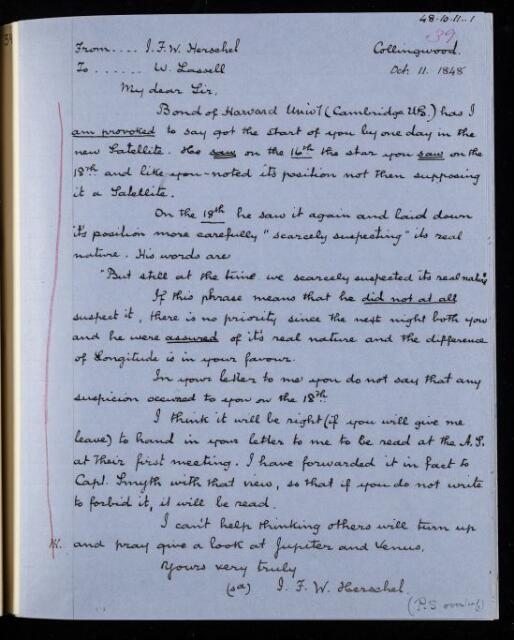 48-10.11-1
39
From.... J. F. W. Herschel Collingwood.
To ...... W. Lassell Oct. 11. 1848
My dear Sir,
Bond of Harvard Univ'y (Cambridge U.S.) has I
am provoked to say got the start of you by one day in the
new Satellite. He saw on the 16th the star you saw on the
18th and like you - noted its position not then supposing
it a Satellite.
On the 18th he saw it again and laid down
it's position more carefully "scarcely suspecting" its real
nature. His words are
"But still at the time we scarcely suspected its real nature
If this phrase means that he did not at all
suspect it, there is no priority since the next night both you
and he were assured of it's real nature and the difference
of Longitude is in your favour.
In your letter to me you do not say that any
suspicion occured to you on the 18th.
I think it will be right (if you will give me
leave) to hand in your letter to me to be read at the A.S.
at their first meeting. I have forwarded it in fact to
Capt. Smyth with that view, so that if you do not write
to forbid it, it will be read.
I can't help thinking others will turn up
and pray give a look at Jupiter and Venus.
Yours very truly
(sd) J. F. W. Herschel.
(P.S. overleaf)